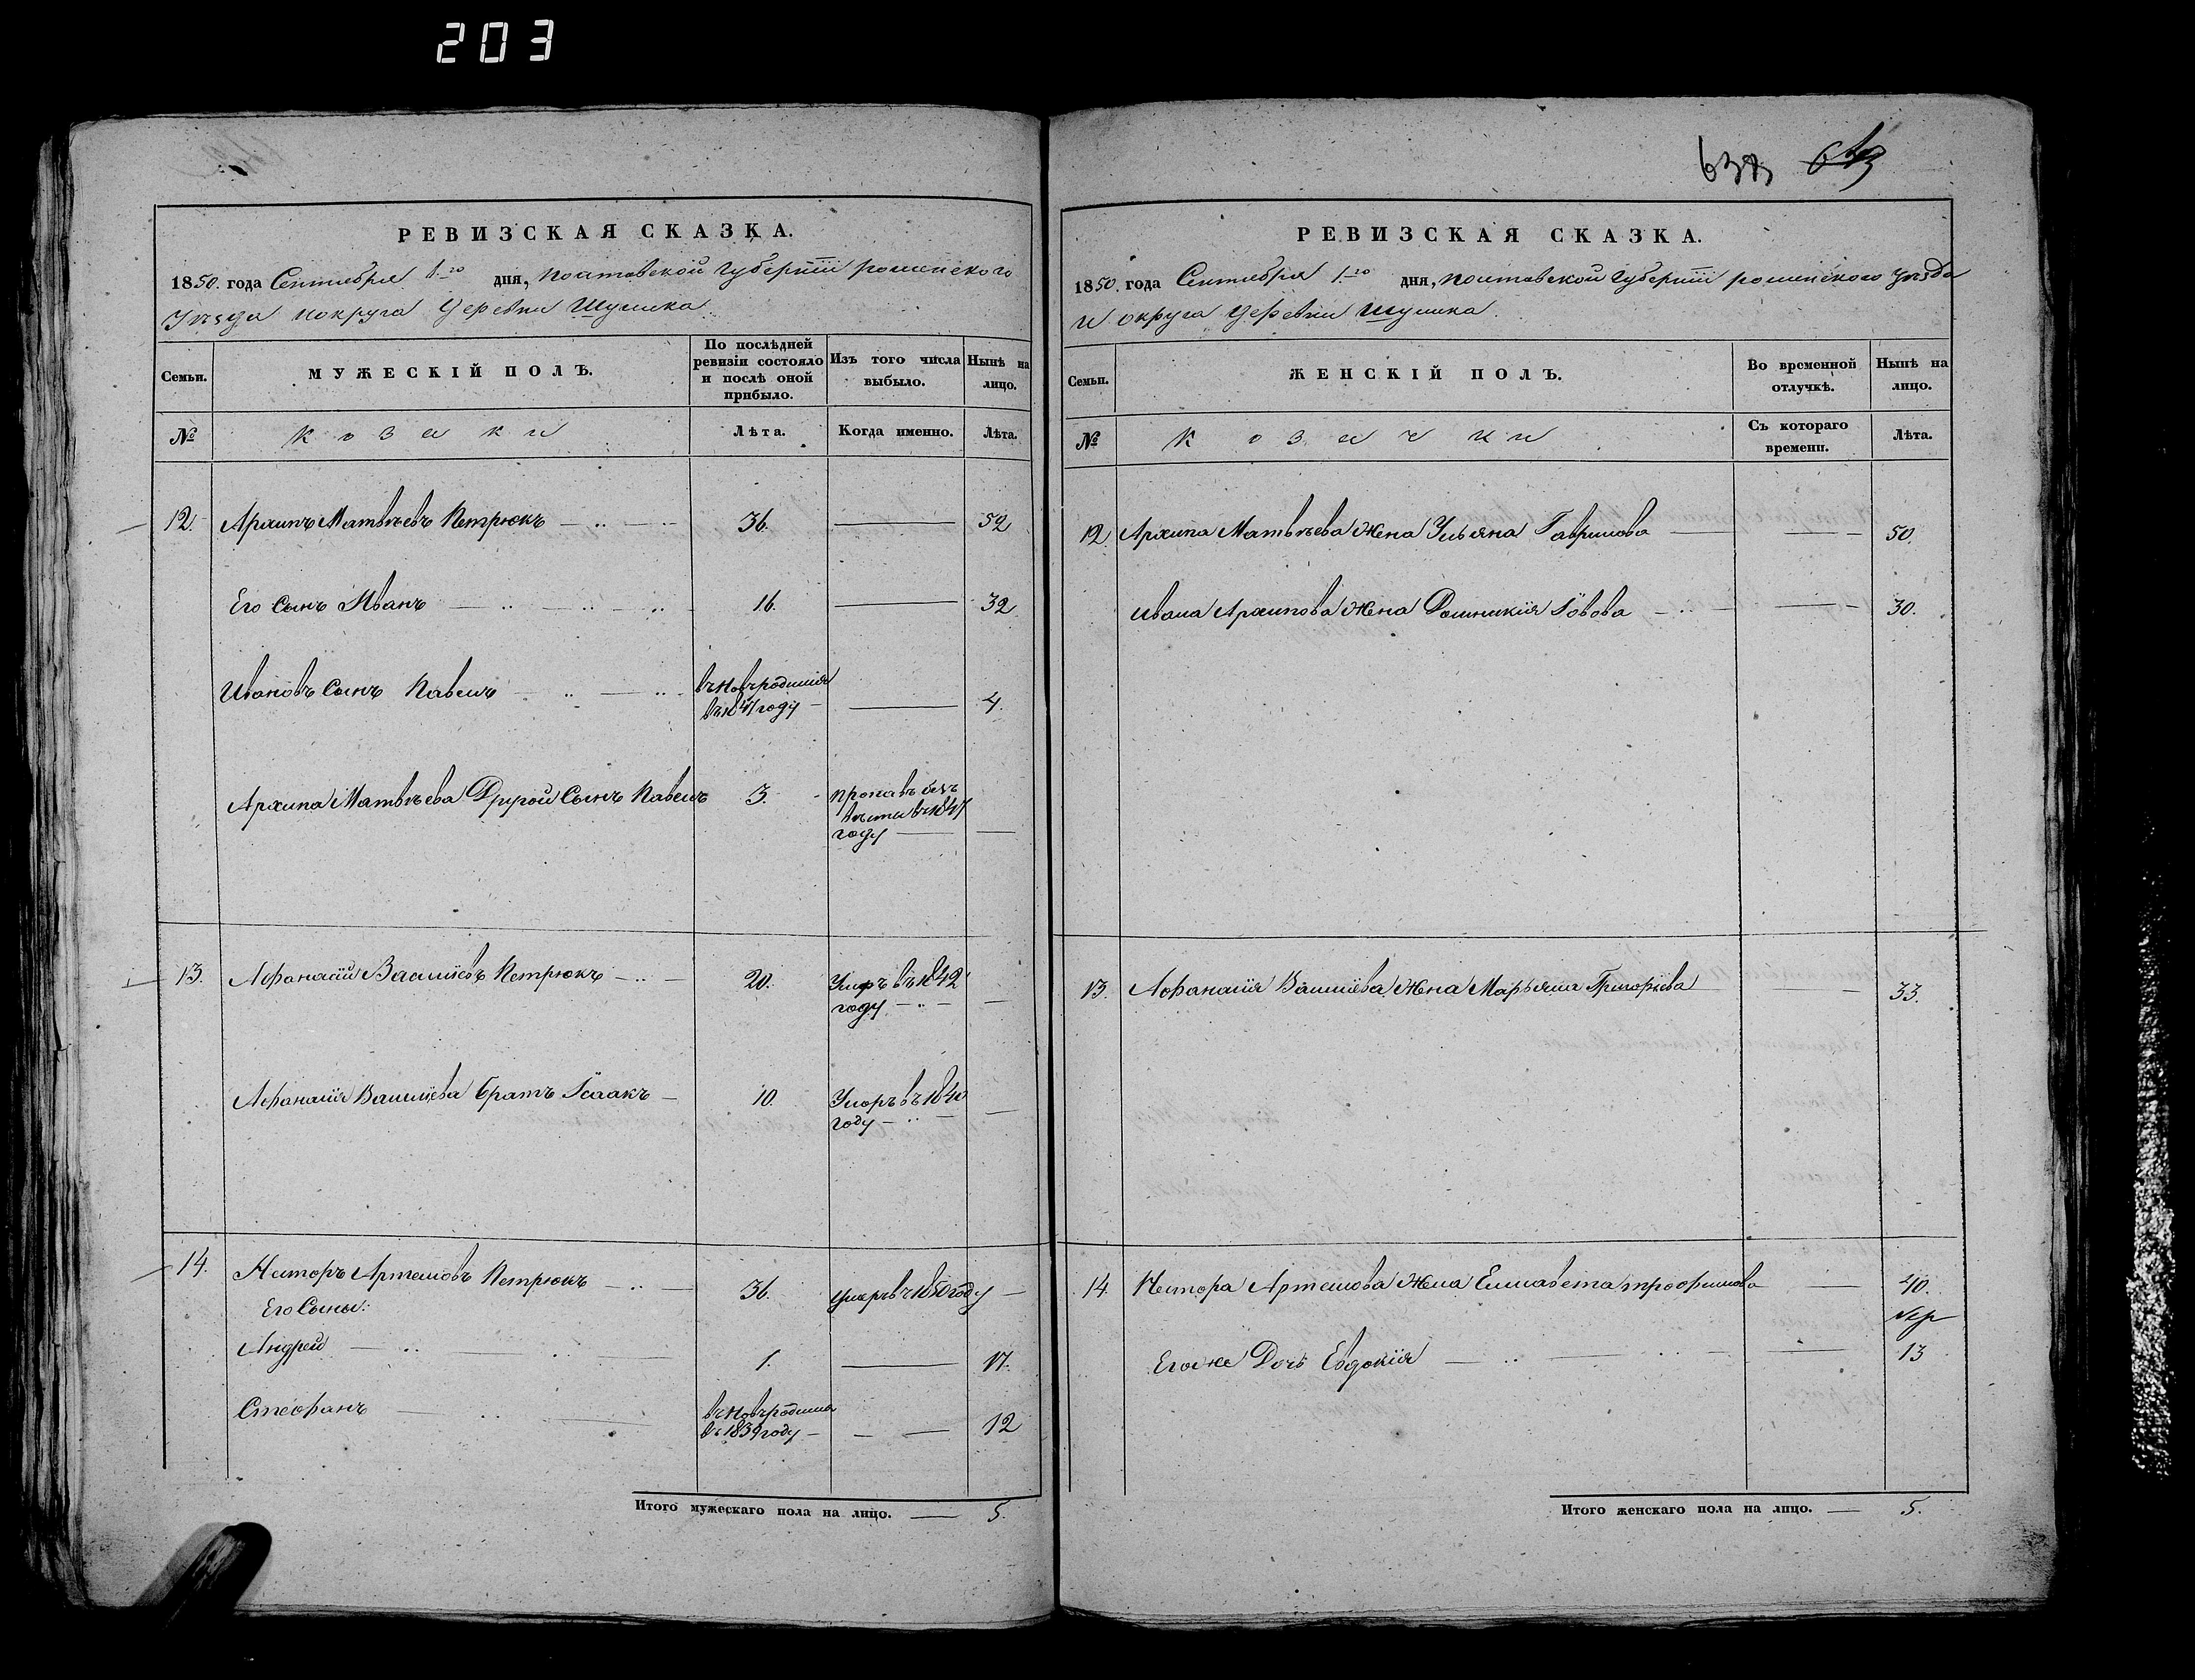 203
638
РЕВИЗСКАЯ СКАЗКА.
1850. года Сентября 1-го дня, Полтавской Губерніи роменского
Уѣзда и округа Деревни Шумска.
Семьи.
МУЖЕСКІЙ ПОЛЪ.
По послѣдней ревизіи состояло и послѣ оной прибыло.
Изъ того числа выбыло.
Нынѣ на лицо.
№
Козаки
Лѣта.
Когда именно.
Лѣта.
12. Архипъ Матвѣевъ Петрюкъ 36. 52
Его Сынъ Иванъ 16. 32
Ивановъ Сынъ Павелъ въ новъ родился
году 4.
Архипа Матвѣева Другой Сынъ Павелъ 3. пропавъ безъ
вѣсти въ 1847
году
13. Афанасій Василіевъ Петрюкъ 20. Умеръ въ 1842
году
Афанасія Василіева братъ Ісаакъ 10. Умеръ въ 1840
году
14. Несторъ Артемовъ Петрюкъ 36. умеръ въ 1850 году
Его Сыны:
Андрей 1. 17.
Стефанъ въ новъ родился
въ 1839 году 12
Итого мужескаго пола на лицо. 5.
РЕВИЗСКАЯ СКАЗКА.
1850. года Сентября 1-го дня, Полтавской Губерніи роменского уѣзда
и округа Деревни Шумска.
Семьи.
ЖЕНСКІЙ ПОЛЪ.
Во временной отлучкѣ.
Нынѣ на лицо.
№
Козачки
Съ котораго времени.
Лѣта.
12 Архипа Матвѣева Жена Ульяна Гаврилова 50.
Ивана Архипова Жена Домникія Іовова 30.
13. Афанасія Василіева Жена Марьяна Григоріева 33.
14. Нестора Артемова Жена Елисавета трофимова 40.
Его же Дочь Евдокія 13
Итого женскаго пола на лицо. 5.